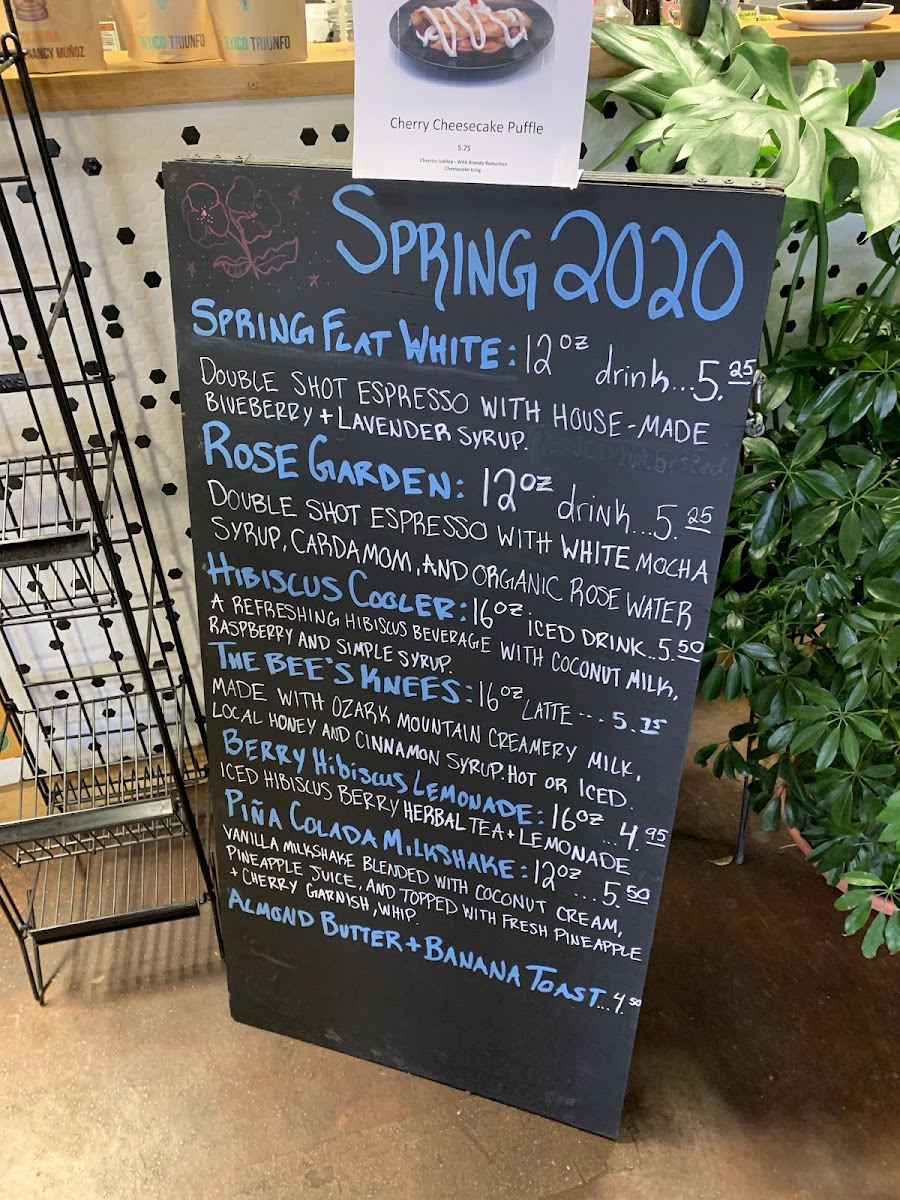 NANCY MUÑOZ
TRIUNFO
TRIUNFO
Cherry Cheesecake Puffle
5.75
Cherries Jubilee - With Brandy Reduction
Cheesecake Icing
SPRING 2020
SPRING FLAT WHITE: 12oz drink...5.25
DOUBLE SHOT ESPRESSO WITH HOUSE-MADE
BLUEBERRY + LAVENDER SYRUP.
ROSE GARDEN: 12oz drink...5.25
DOUBLE SHOT ESPRESSO WITH WHITE MOCHA
SYRUP, CARDAMOM, AND ORGANIC ROSE WATER
HIBISCUS COOLER: 16oz ICED DRINK..5.50
A REFRESHING HIBISCUS BEVERAGE WITH COCONUT MILK,
RASPBERRY AND SIMPLE SYRUP.
THE BEE'S KNEES: 16oz LATTE --- 5.75
MADE WITH OZARK MOUNTAIN CREAMERY MILK,
LOCAL HONEY AND CINNAMON SYRUP. HOT OR ICED.
BERRY HIBISCUS LEMONADE: 16oz ...4.95
ICED HIBISCUS BERRY HERBAL TEA + LEMONADE
PIÑA COLADA MILKSHAKE: 12oz ...5.50
VANILLA MILKSHAKE BLENDED WITH COCONUT CREAM,
PINEAPPLE JUICE, AND TOPPED WITH FRESH PINEAPPLE
+ CHERRY GARNISH, WHIP.
ALMOND BUTTER + BANANA TOAST...4.50